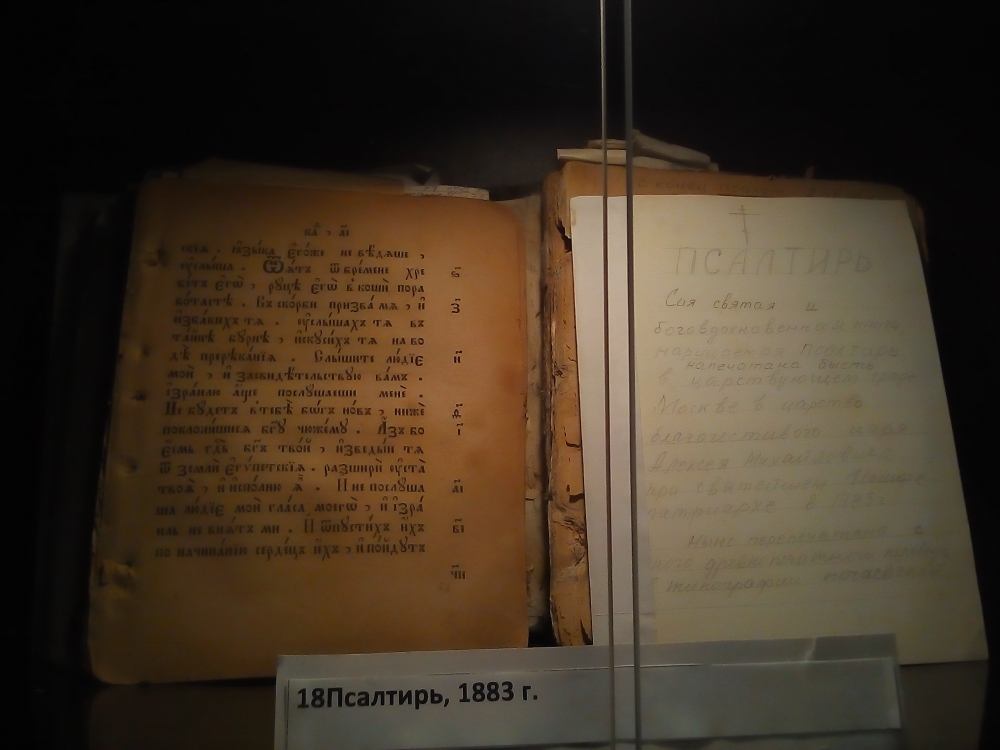 скїѧ . ꙗ҆зы́ка є҆гѡ́же не вѣ́дѧше ,
ᲂу҆слы́ша . Ѿѧ́тъ ѿ бре́мене хре
бе́тъ є҆гѡ̀ , рꙋ́цѣ є҆гѡ̀ в ко́шн пора
бо́тастѣ . Въ ско́рби призва́ мѧ , и҆
и҆зба́вихъ тѧ . ᲂу҆слы́шахъ тѧ въ
та́йнѣ бꙋ́рнѣ , и҆скꙋси́хъ тѧ на во
дѣ̀ прерѣка́нїѧ . Слы́шите лю́дїе
мои̑ , и҆ засвидѣ́тельствꙋю ва́мъ .
і҆зра́илю а҆́ще послꙋ́шаеши менѐ .
Не бꙋ́детъ в тебѣ̀ бо́гъ но́въ , нижѐ
поклони́шисѧ бг҃ꙋ чюже́мꙋ . А҆́зъ бо
є҆́смь гдⷭ҇ь бг҃ъ тво́й , и҆зведы́и тѧ
ѿ землѝ є҆гѵ́петскїѧ . разширѝ ᲂу҆ста̀
твоѧ̑ , и҆ и҆спо́лню ѧ҆̀ . И не послꙋ́ша
ша лю́дїе мои̑ гла́са моегѡ̀ , и҆ і҆зра́
иль не внѧ́тъ мѝ . И ѿпꙋсти́хъ и҆́хъ
по начина́нїю серде́цъ и҆́хъ , и҆ по́йдꙋтъ
ПСАЛТИРЬ
Сия святая и
богов
нарицается Псалтирь
напечатана бысть
в царствующем граде
Москве в царство
благочестивого царя
Алексея Михайловича
при святейшем
патриархе в
Ныне перепечатана с
древнепечатной
в типографии почаевской
18Псалтирь, 1883 г.